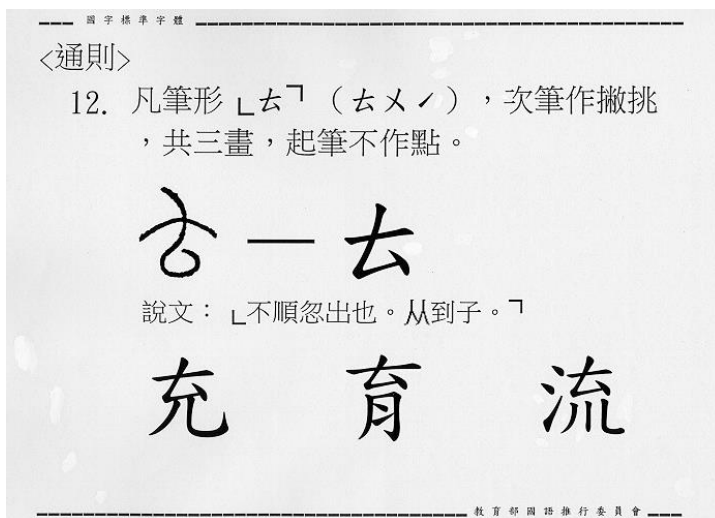 國字標準字體
<通則>
12. 凡筆形「𠫓」（ㄊㄨˊ），次筆作撇挑
，共三畫，起筆不作點。
𠫓—𠫓
說文：「不順忽出也。从到子。」
充 育 流
教育部國語推行委員會